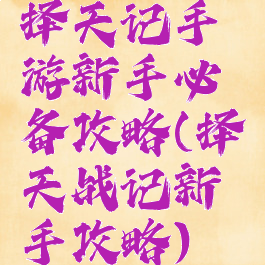 择天记手
游新手必
备攻略(择
天战记新
手攻略)